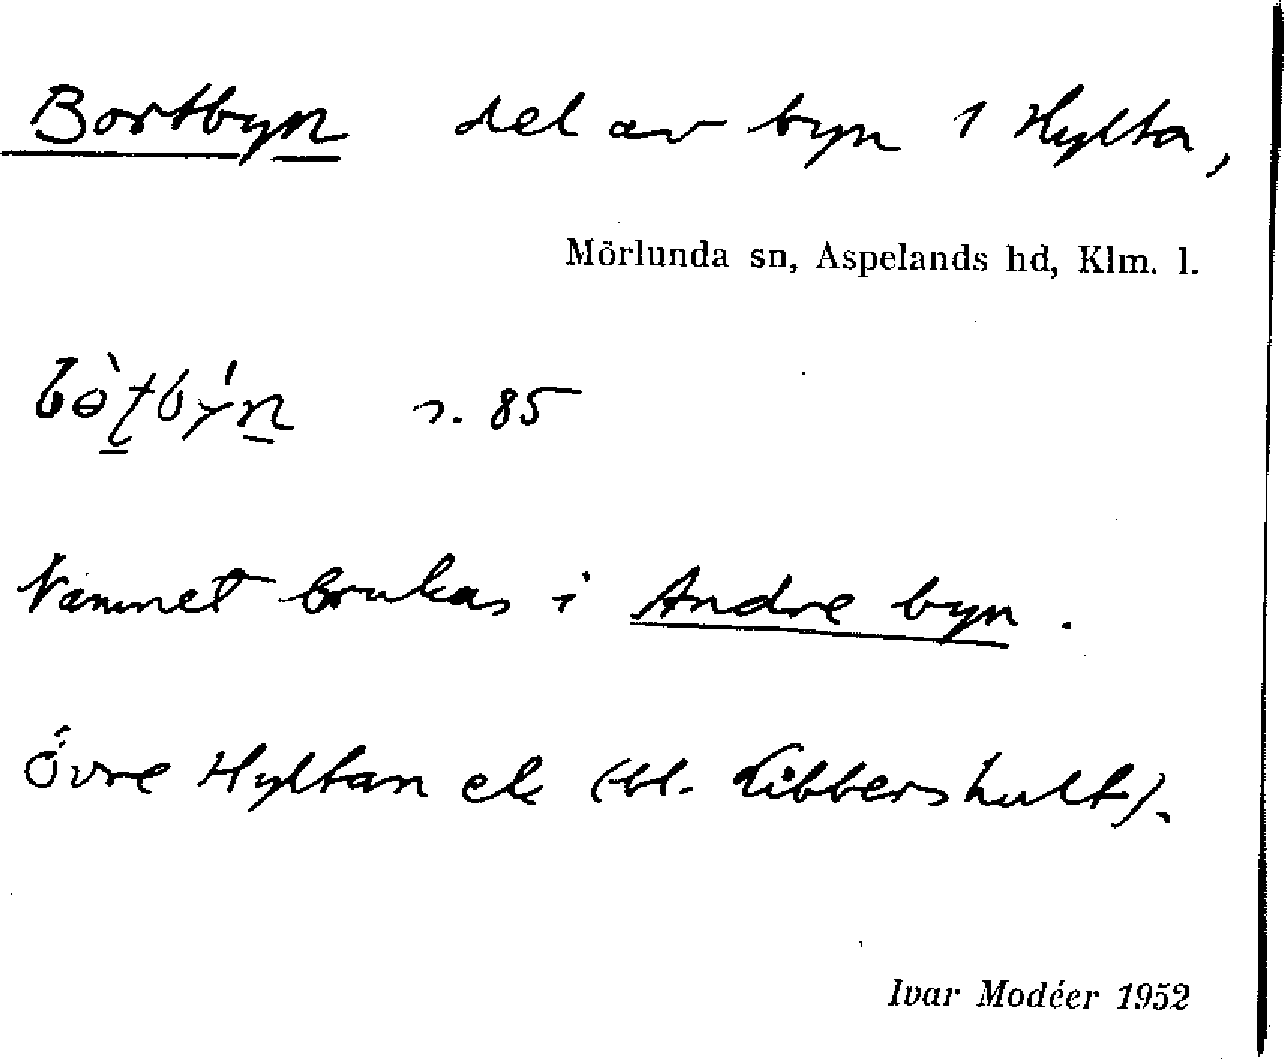 Bortbyn del av byn 1 Hylta,
Mörlunda sn, Aspelands hd, Klm. l.
s. 85
Namnet brukas i Andre byn.
Övre Hyltan ek (bl. Libbershult).
Ivar Modéer 1952